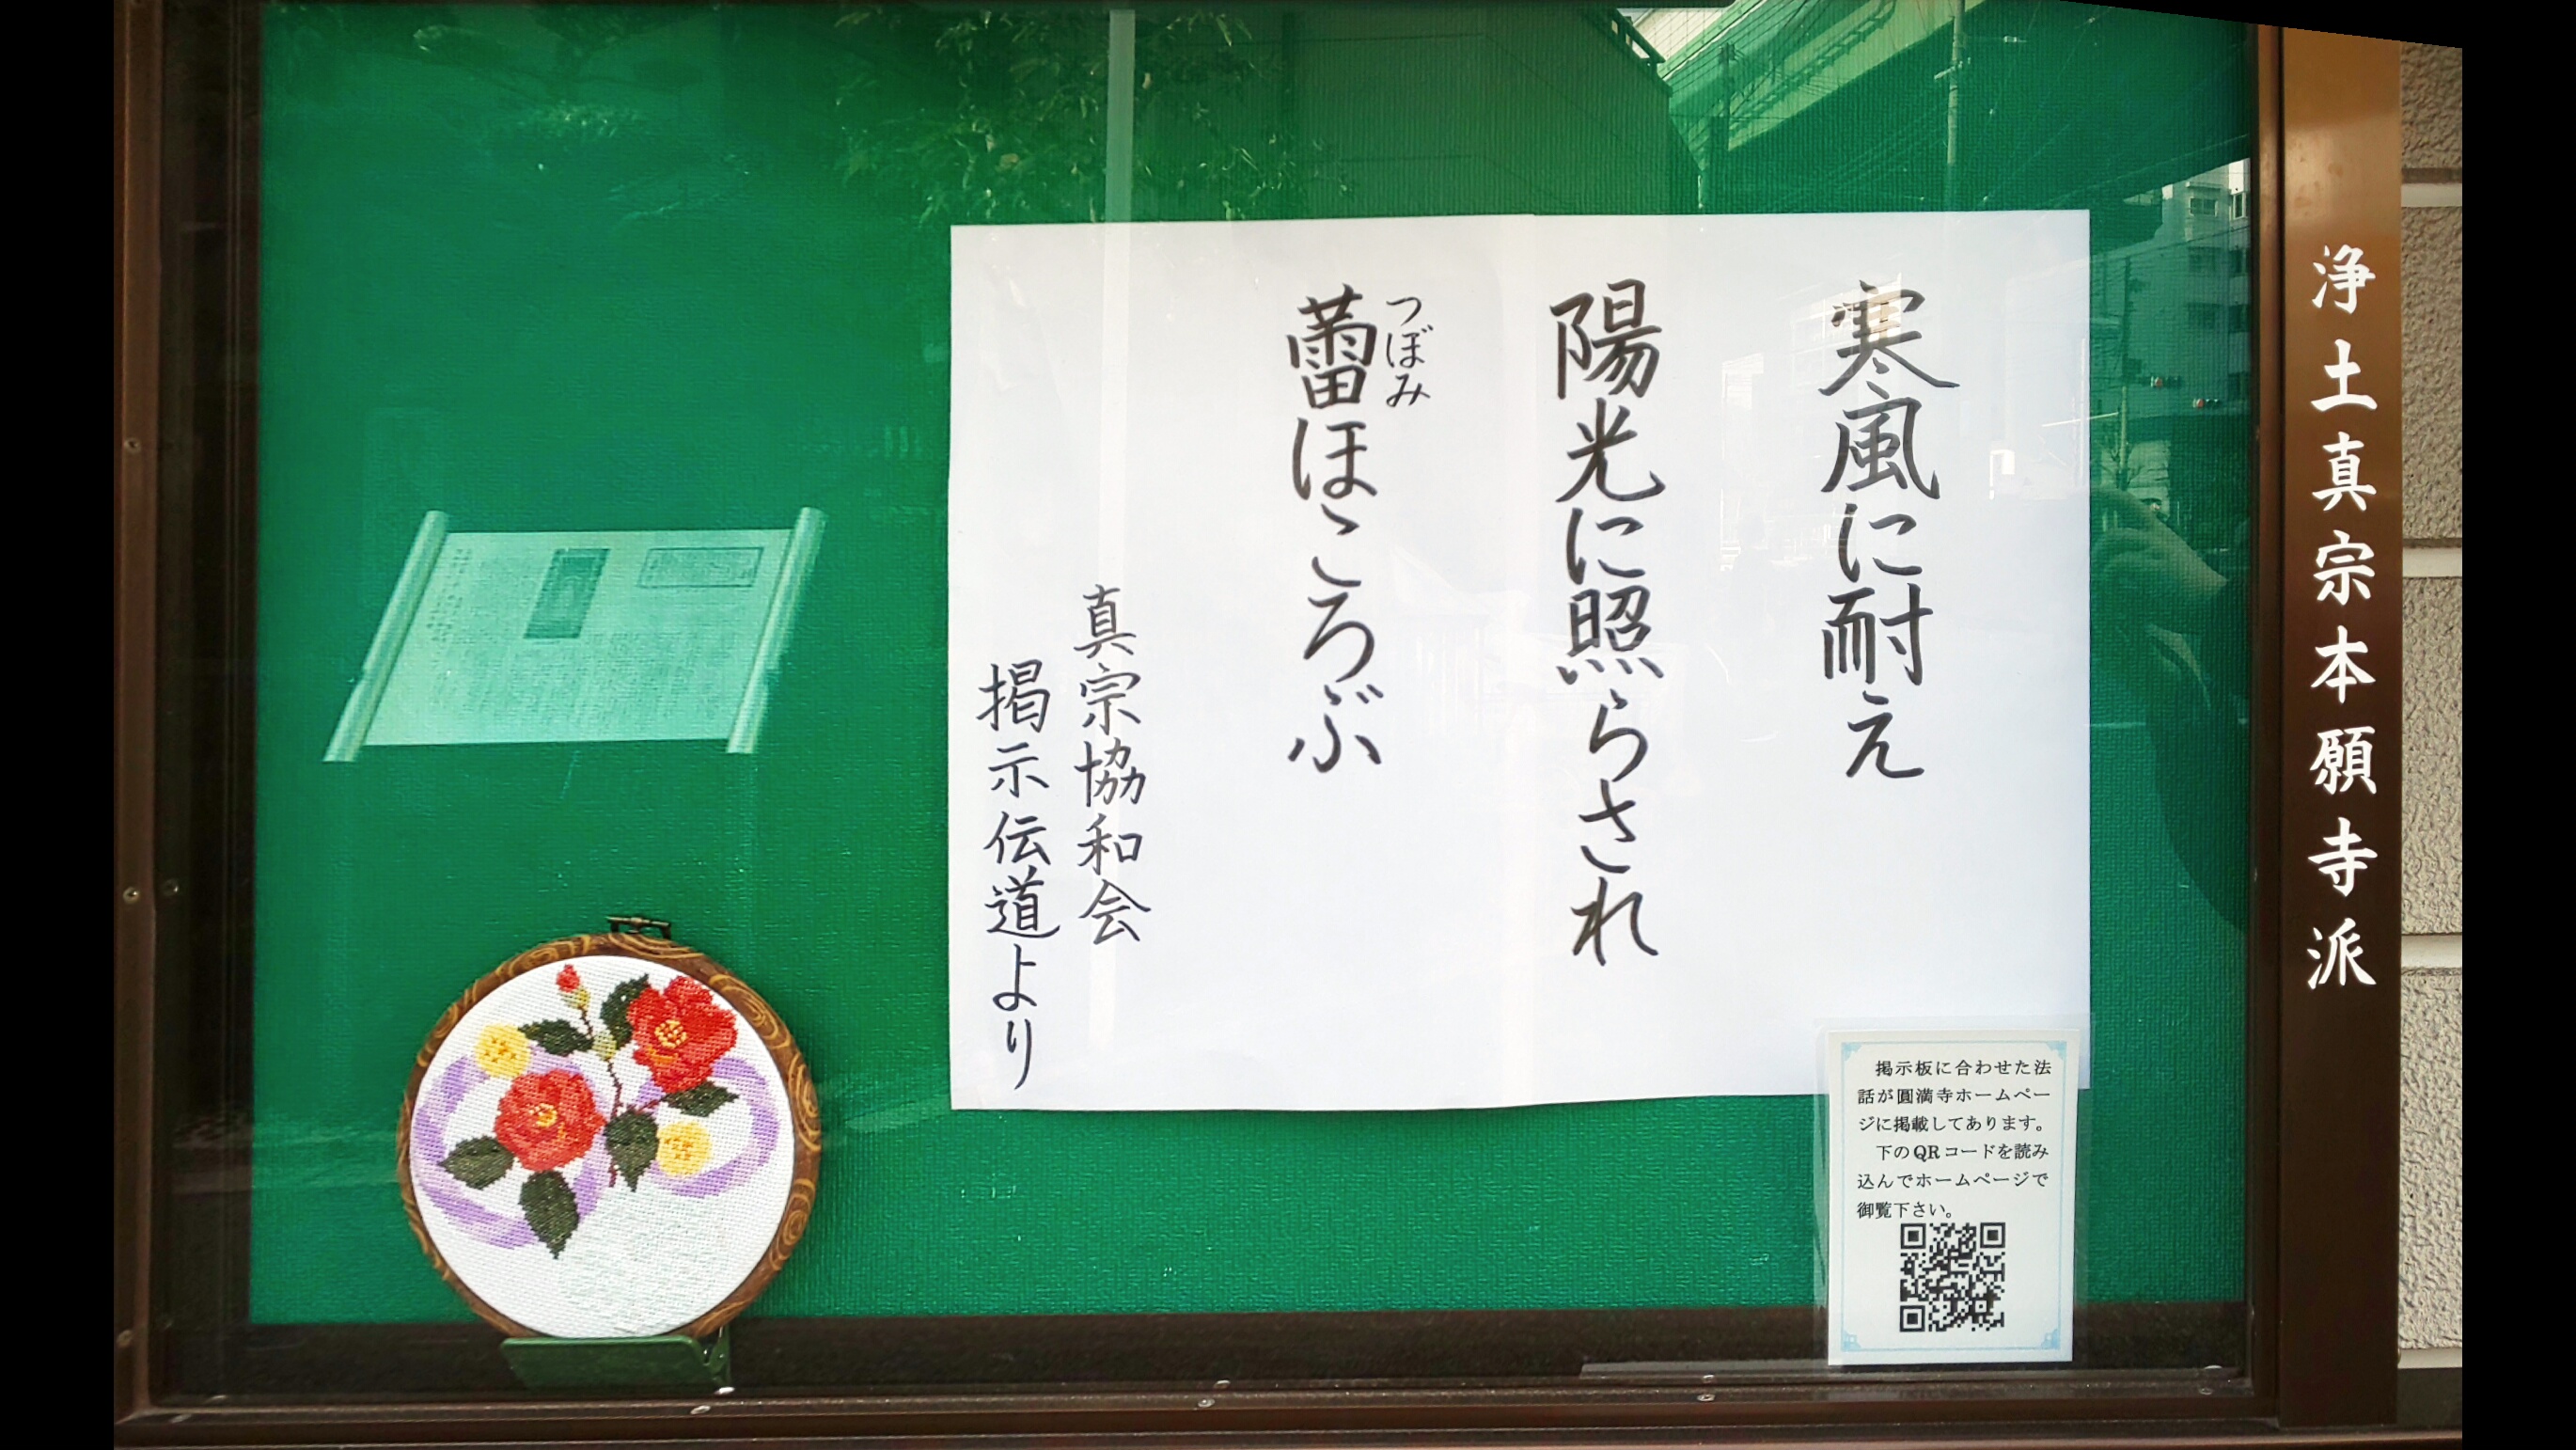 浄土真宗本願寺派
寒風に耐え
陽光に照らされ
つぼみ
蕾ほころぶ
真宗協和会
掲示伝道より
掲示板に合わせた法
話が圓満寺ホームペー
ジに掲載してあります。
下のQRコードを読み
込んでホームページで
御覧下さい。